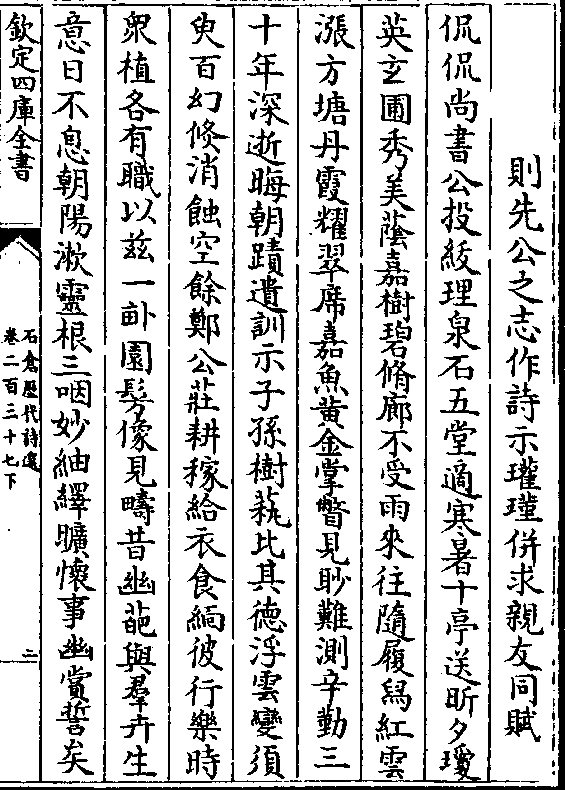 則先公之志作詩示瓘瑾併求親友同賦
侃侃尚書公投綬理泉石五堂適寒暑十亭送昕夕瓊
英玄圃秀美蔭嘉樹碧脩廊不受雨來往隨履舄紅雲
漲方塘丹霞耀翠席嘉魚黄金掌瞥見眇難測辛勤三
十年深逝晦朝蹟遺訓示子孫樹蓺比其德浮雲變須
臾百幻倐消蝕空餘鄭公莊耕稼給衣食緬彼行樂時
衆植各有職以兹一畝園髣像見疇昔幽葩與羣卉生
意日不息朝陽漱靈根三咽妙紬繹曠懷事幽賞誓矣
欽定四庫全書
石倉歷代詩選
卷二百三十七下
二